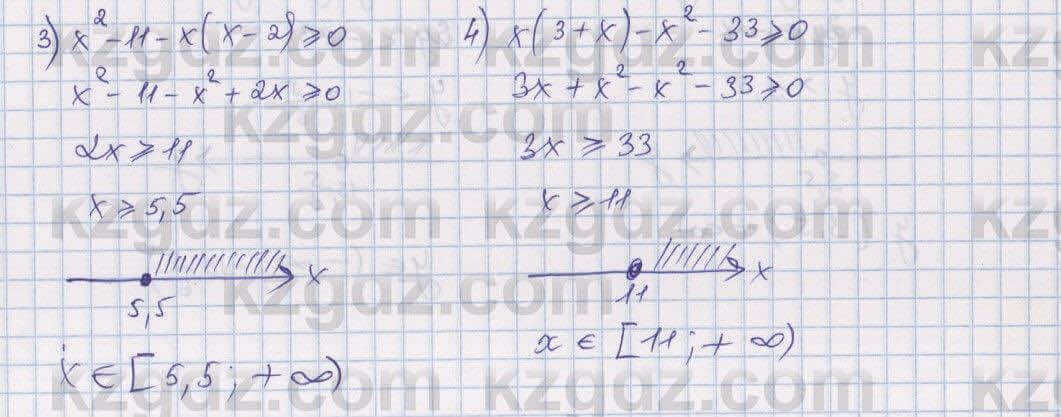 3) x² - 11 - x(x - 2) ⩾ 0
x² - 11 - x² + 2x ⩾ 0
2x ⩾ 11
x ⩾ 5,5
x
5,5
x ∈ [5,5; +∞)
4) x(3 + x) - x² - 33 ⩾ 0
3x + x² - x² - 33 ⩾ 0
3x ⩾ 33
x ⩾ 11
x
11
x ∈ [11; +∞)
kzgdz.com
kzgdz.com
kzgdz.com
kzgdz.com
kzgdz.com